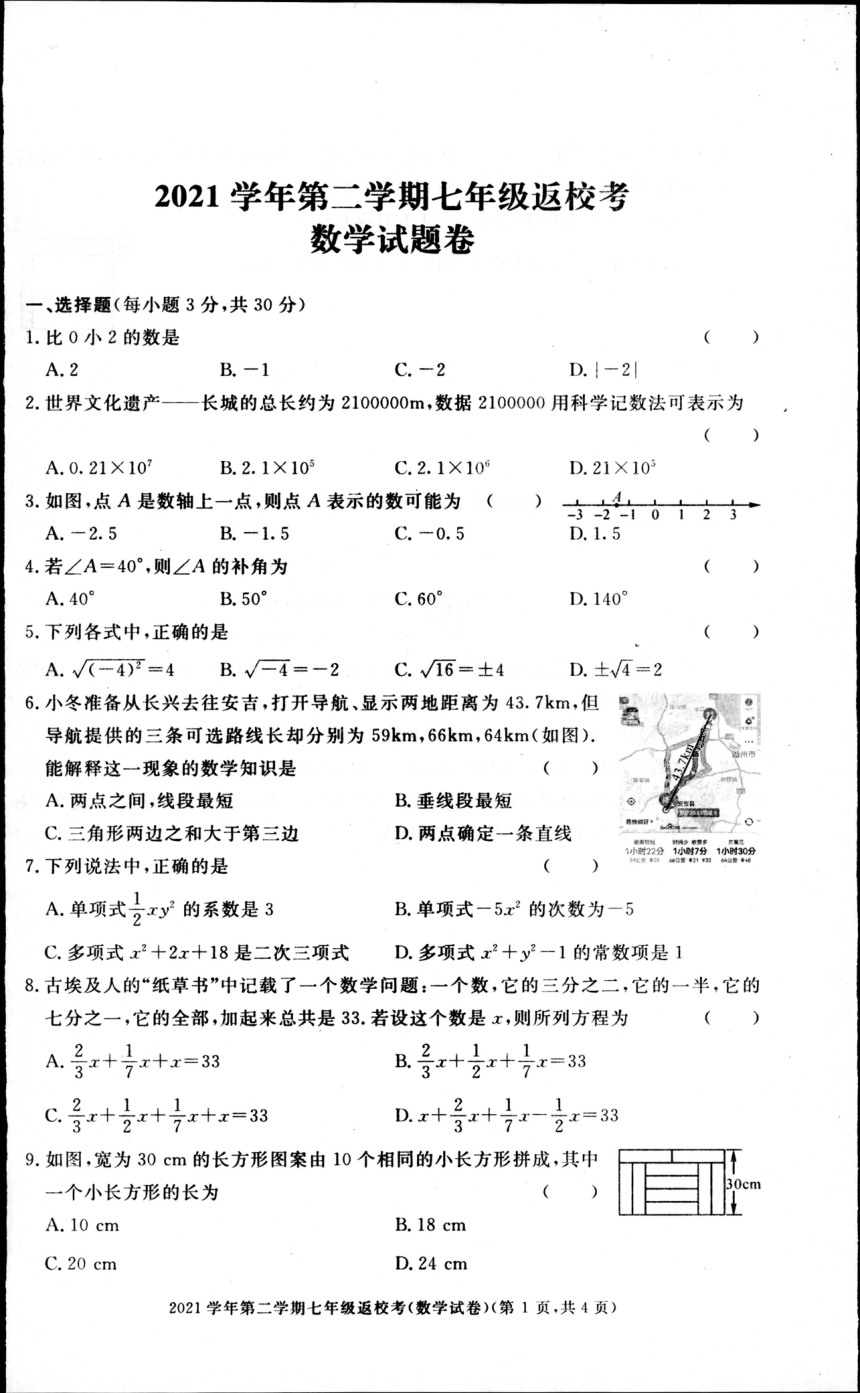 2021 学年第二学期七年级返校考
数学试题卷
一、选择题(每小题 3 分,共 30 分)
1. 比 0 小 2 的数是 (  )
A. 2 B. −1 C. −2 D. |−2|
2. 世界文化遗产——长城的总长约为 2100000m,数据 2100000 用科学记数法可表示为
(  )
A. 0.21×10⁷ B. 2.1×10⁵ C. 2.1×10⁶ D. 21×10⁵
3. 如图,点 A 是数轴上一点,则点 A 表示的数可能为 (  )
A
-3 -2 -1 0 1 2 3
A. −2.5 B. −1.5 C. −0.5 D. 1.5
4. 若∠A=40°,则∠A 的补角为 (  )
A. 40° B. 50° C. 60° D. 140°
5. 下列各式中,正确的是 (  )
A. √(−4)²=4 B. √−4=−2 C. √16=±4 D. ±√4=2
6. 小冬准备从长兴去往安吉,打开导航、显示两地距离为 43.7km,但
导航提供的三条可选路线长却分别为 59km,66km,64km(如图).
能解释这一现象的数学知识是 (  )
A. 两点之间,线段最短 B. 垂线段最短
C. 三角形两边之和大于第三边 D. 两点确定一条直线
43.7km
湖州市
安吉县
1小时22分 1小时7分 1小时30分
7. 下列说法中,正确的是 (  )
A. 单项式 1/2 xy² 的系数是 3 B. 单项式−5x² 的次数为−5
C. 多项式 x²+2x+18 是二次三项式 D. 多项式 x²+y²−1 的常数项是 1
8. 古埃及人的“纸草书”中记载了一个数学问题:一个数,它的三分之二,它的一半,它的
七分之一,它的全部,加起来总共是 33. 若设这个数是 x,则所列方程为 (  )
A. 2/3 x+1/7 x+x=33 B. 2/3 x+1/2 x+1/7 x=33
C. 2/3 x+1/2 x+1/7 x+x=33 D. x+2/3 x+1/7 x−1/2 x=33
9. 如图,宽为 30 cm 的长方形图案由 10 个相同的小长方形拼成,其中
一个小长方形的长为 (  )
30cm
A. 10 cm B. 18 cm
C. 20 cm D. 24 cm
2021 学年第二学期七年级返校考(数学试卷)(第 1 页,共 4 页)